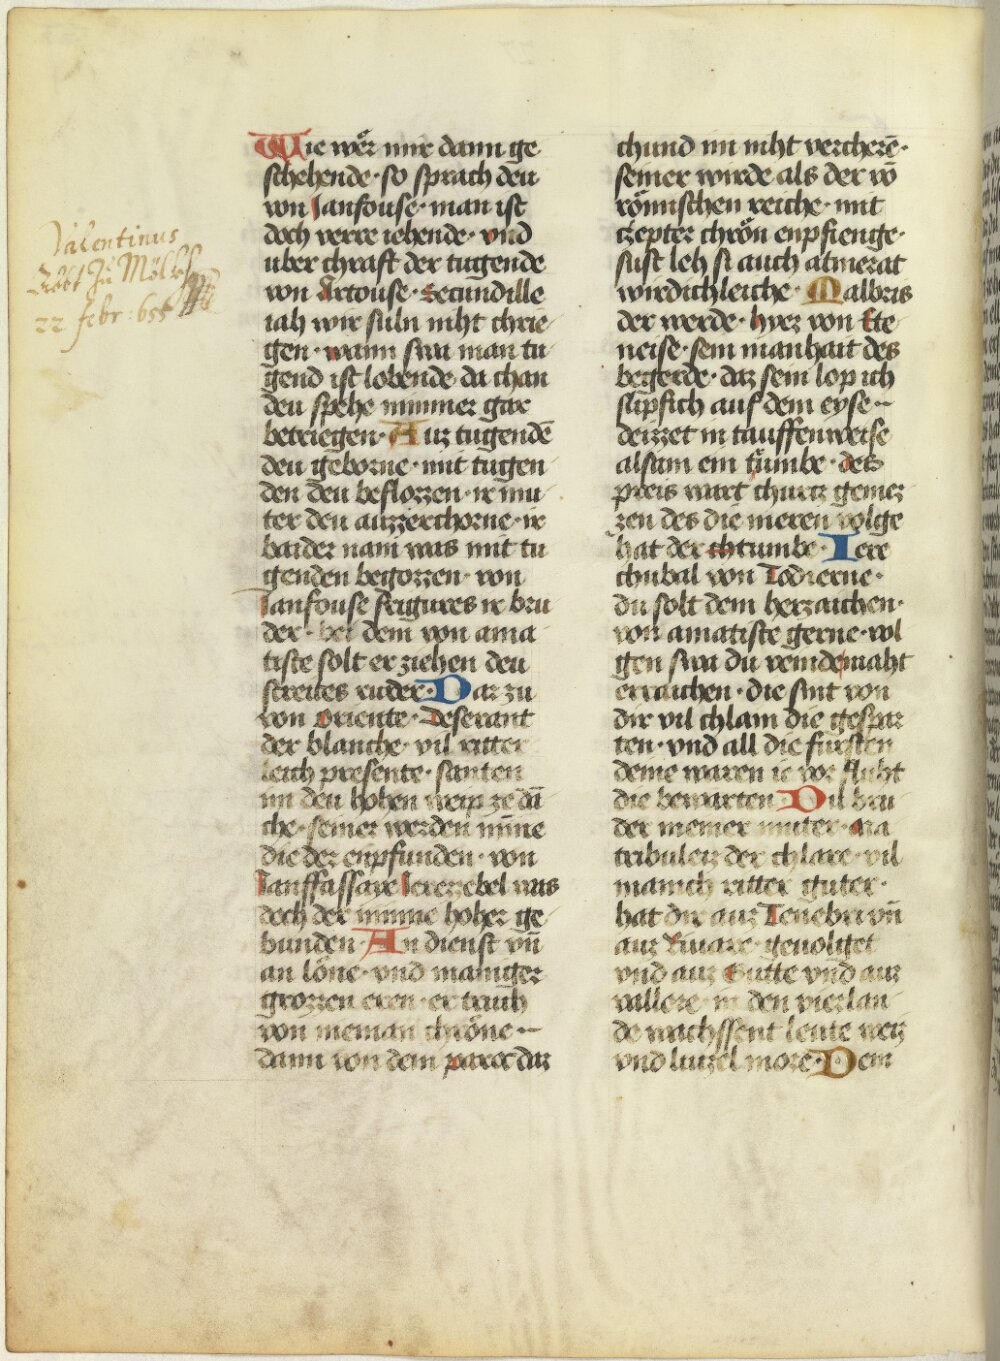 Valentinus
Abbt Zu Mölkh
22 febr: 655
Wie wer mir dann ge
schehende · so sprach deu
von Janfouse · man ist
doch verre iehende · vnd
uber chraft der tugende
von Artouse · Secundille
iah wir suln niht chrie
gen · wann swa man tu
gend ist lobende da chan
deu spehe nimmer gar
betriegen · Auz tugendē
deu geborne · mit tugen
den deu beflozzen · ir mu
ter deu auzzerchorne · ir
baider nam was mit tu
genden begozzen · von
Janfouse Feigures ir bru
der · bei dem von ama
tiste solt er ziehen deu
streites ruder · Dar zu
von Oriente · Deserant
der blanche · vil ritter
leich presente · santen
im deu hohen weip ze dā
che · seiner werden minne
die der enpfunden · von
Janffassare Jerezzebel was
doch der minne hoher ge
bunden · An dienst vn̄
an löne · vnd maniger
grozzen eren · er truch
von nieman chröne ·
dann von dem paroc daz
chund im niht vercherē ·
seiner wirde als der vō
römischen reiche · mit
czepter chrön enpfienge ·
sust leh si auch atmerat
wirdichleiche · Malbris
der werde · hyez von Ete
neise · sein manhait des
begerde · daz sein lop ich
slipfich auf dem eyse ·
deizzet in tauffenweise
alsam ein tumbe · des
preis wart churtz gemez
zen des die meren volge
hat der tumbe · Iere
chubal von Todierne ·
du solt dem herzaichen ·
von amatiste gerne · vol
gen swa du veinde maht
erraichen · die sint von
dir vil chlain die gespar
ten · vnd all die fursten
deine waren ie vor fluht
die bewarten · Dil bru
der meiner muter · Na
tribuleiz der chlare · vil
manich ritter guter ·
hat dir auz Tenebri vn̄
auz Liuare · geuolget
vnd auz Gutte vnd auz
vallere · in den vier lan
de wachssent leute weiz
vnd luzel more · Dem